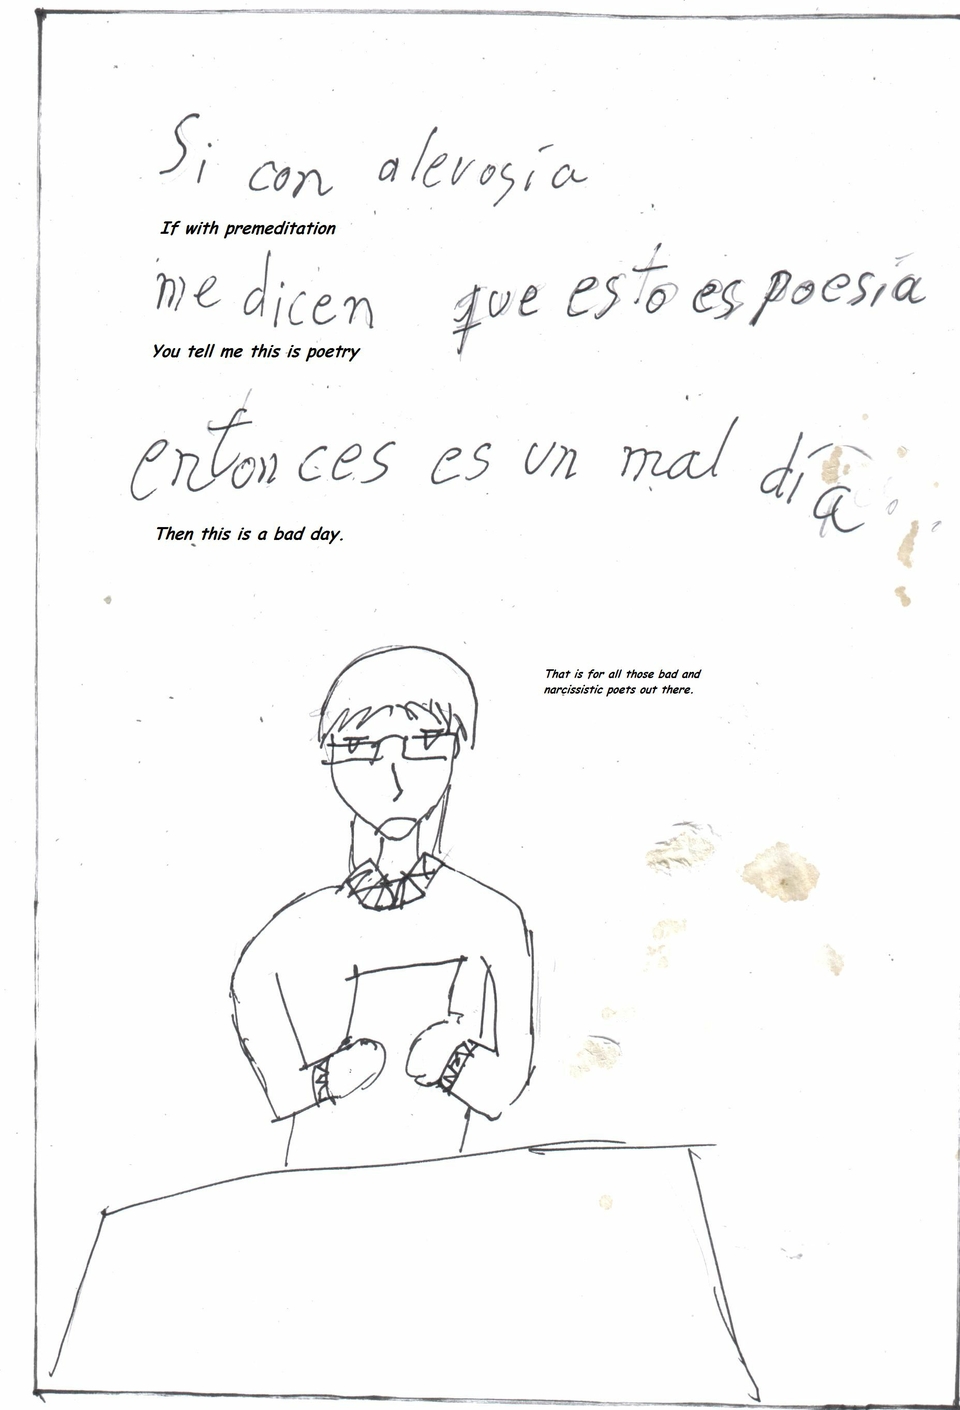 Si con alevosía
If with premeditation
me dicen que esto es poesía
You tell me this is poetry
entonces es un mal día
Then this is a bad day.
That is for all those bad and
narcissistic poets out there.